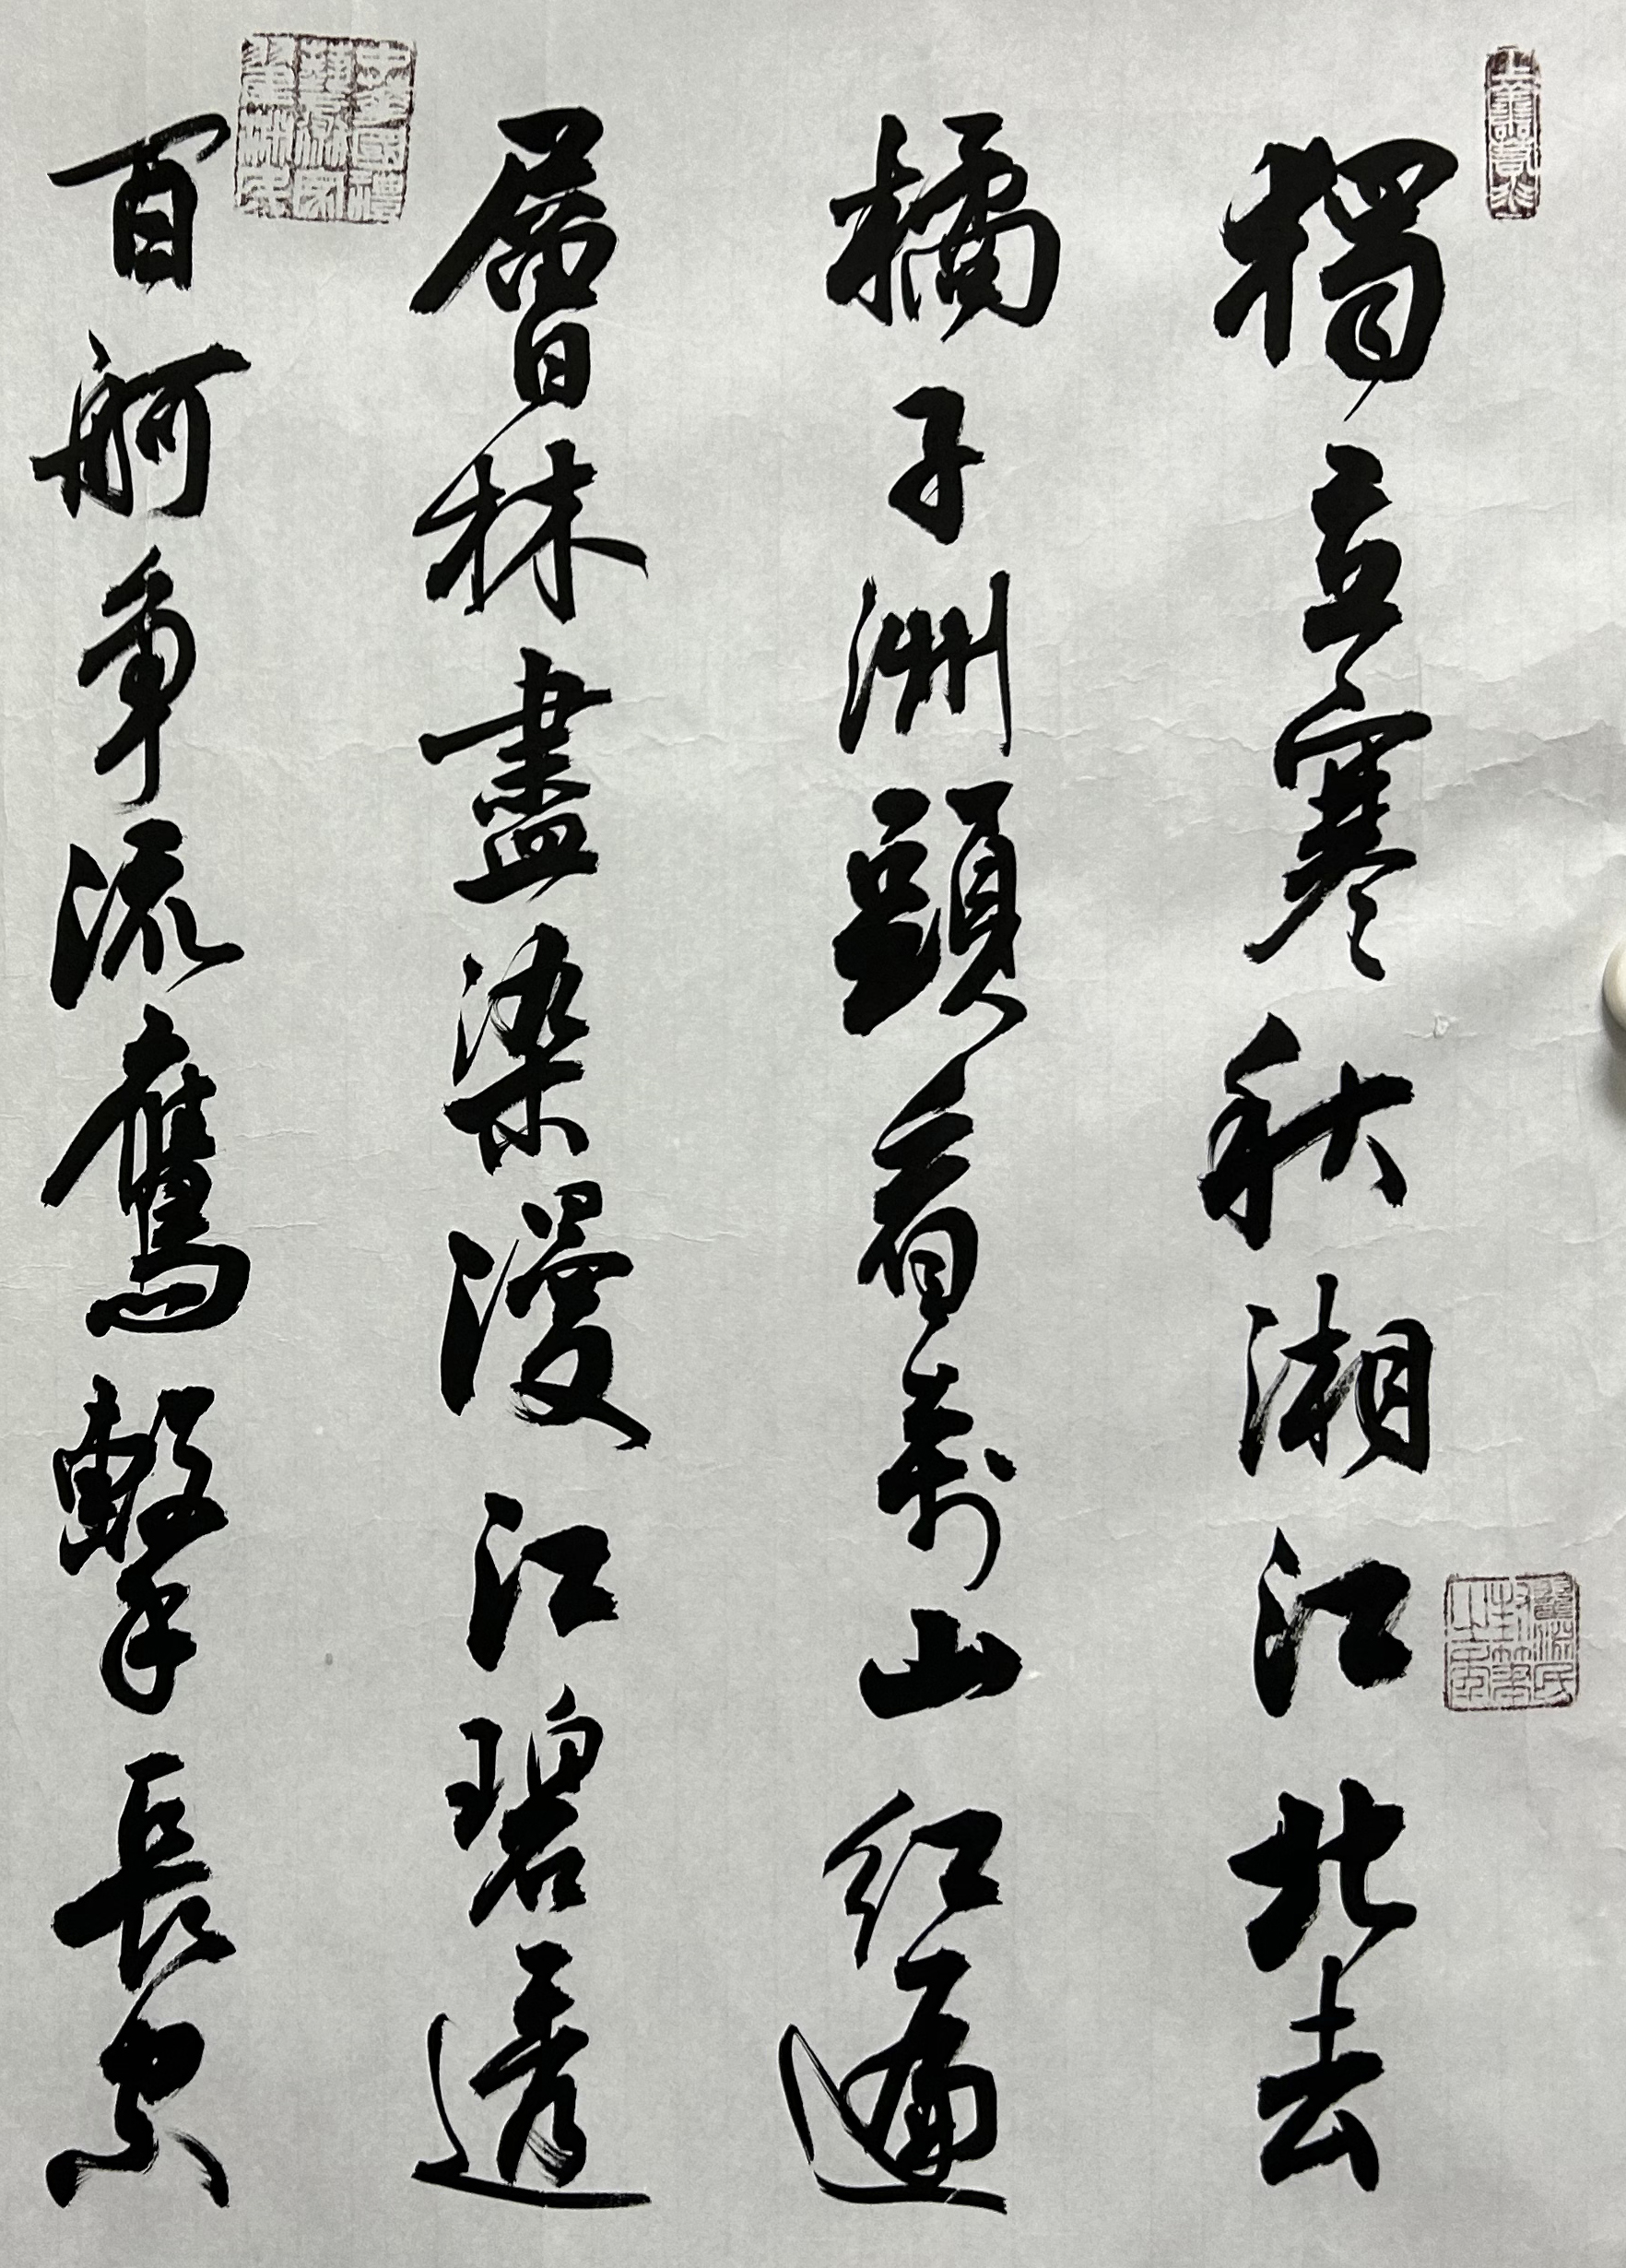 獨立寒秋湘江北去
橘子洲頭看萬山紅遍
層林盡染漫江碧透
百舸爭流鷹擊長空